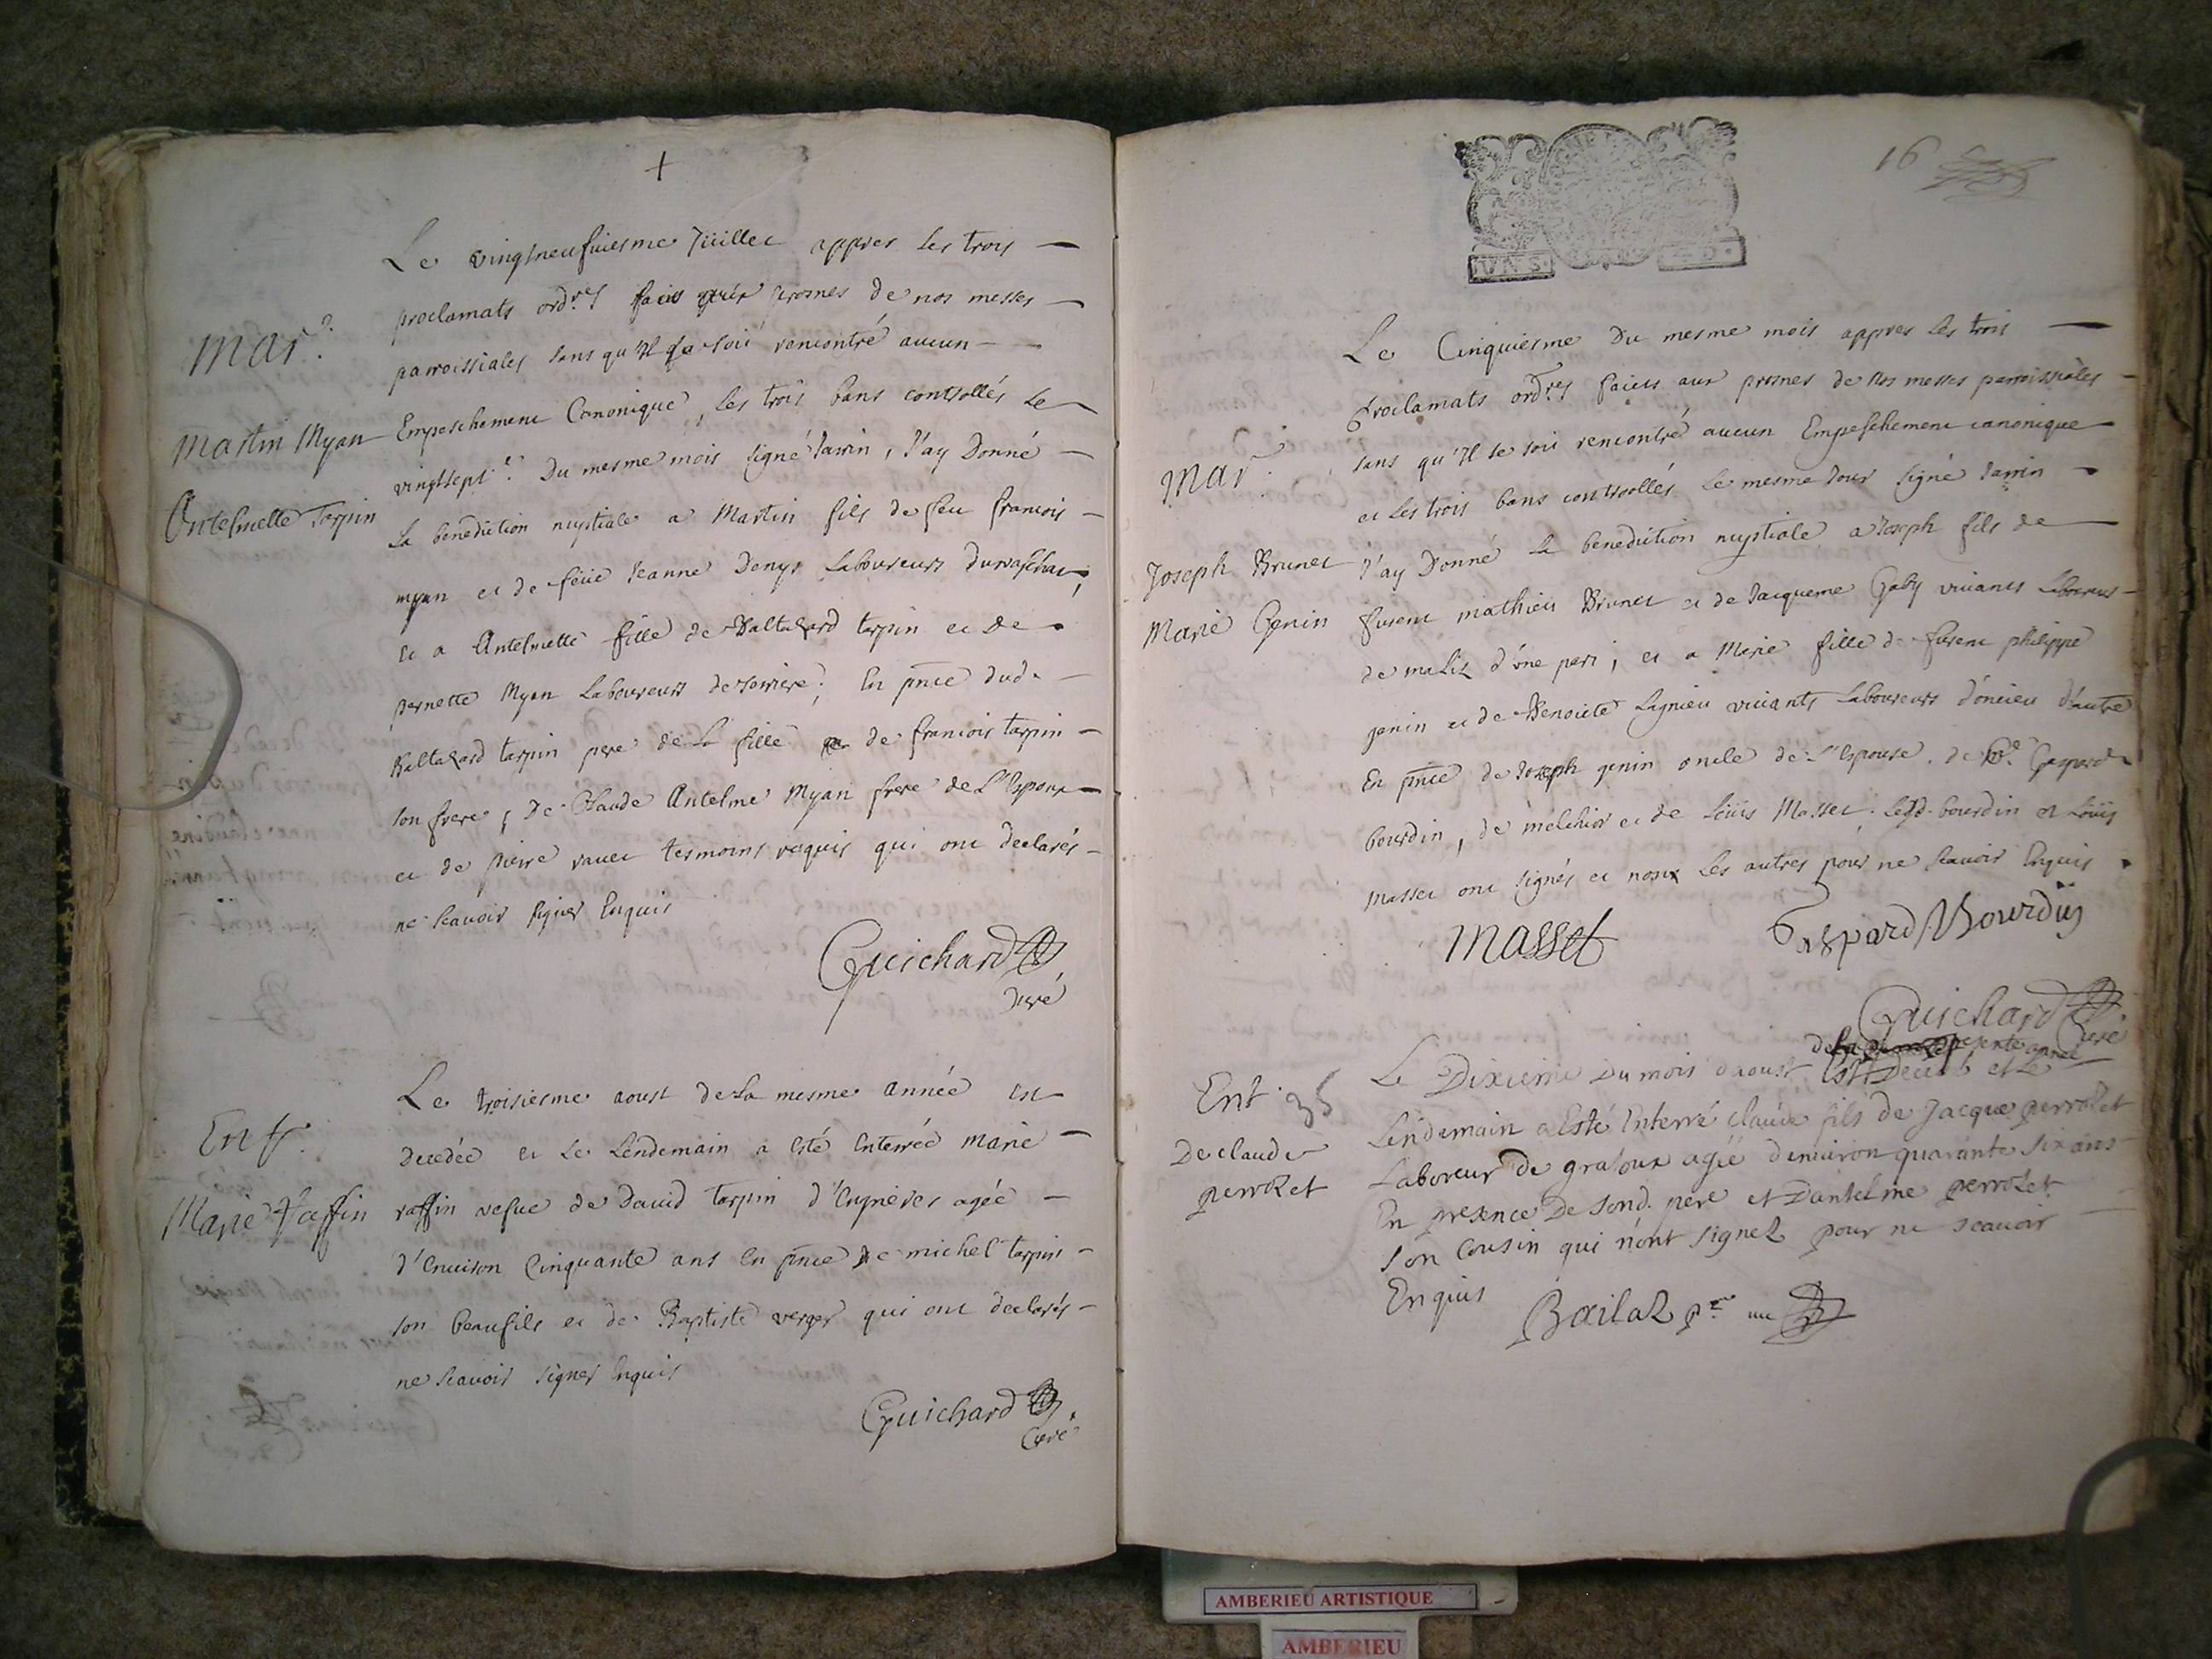 +
Le vingtneufviesme Juillet appres les trois
Mar.e
proclamats ord.res faits aux prosnes de nos messes
parroissiales sans qu'Il se soit rencontré aucun
Martin Myan
Empeschement Canonique, les trois bans controllés le
vingtsept.e du mesme mois signé Jarrin, J'ay Donné
Antelmette Tarpin
La benediction nuptiale a Martin fils de feu francois
myan et de feüe Jeanne Denys Laboureurs
et a Antelmette fille de Baltazard tarpin et de
pernette Myan Laboureurs de; En pnce dud.
Baltazard tarpin pere de La fille de francois tarpin
son frere, De Claude Antelme Myan frere de L'Epoux
et de pierre ravet tesmoins requis qui ont declarés
ne scavoir signer Enquis
Guichard
Curé
Le troisiesme aoust de La mesme année est
Ent.
Decedée et Le Lendemain a Esté Enterrée Marie
Marie Raffin
raffin vefue de David Tarpin d'Eugnères agée
d'Enuiron Cinquante ans En pnce De michel tarpin
son beaufils et de Baptiste verger qui ont declarés
ne scavoir signer Enquis
Guichard
Curé
16
Le Cinquiesme Du mesme mois appres les trois
Proclamats ord.res faicts aux prosnes de Nos messes parroissiales
Mar.
sans qu'Il se soit rencontré aucun Empeschement canonique
et les trois bans controollés Le mesme Jour signé Jarrin
Joseph Brunet
J'ay Donné La benediction nuptiale a Joseph fils de
Marie Genin
furent mathieu Brunet et de Jacqueme Gaby viuants Laboureurs
de maLix d'une part; et a Marie fille de furent philippe
genin et de Benoite Lagnieu viuants Laboureurs d'oncieu d'autre
En pnce de Joseph genin oncle de L'Espouse, de Gaspard
bourdin, de melchior et de Loüis Masset. Lesd. bourdin et Loüis
masset ont signés et non Les autres pour ne scavoir Enquis
Masset
Gaspard Bourdin
Guichard
Curé
de la presente année
Ent. 35
Le Dixieme Du mois daoust Est Decedé et Le
De claude
perrozet
Lendemain a Esté Enterré claude fils de Jacque perrozet
Laboreur De gratoux agée denuiron quarante six ans
En presence De sond. pere et Dantelme perrozet
son Cousin qui n'ont signez pour ne scauoir
Enquis
Bailaz p.re
AMBERIEU ARTISTIQUE
AMBERIEU